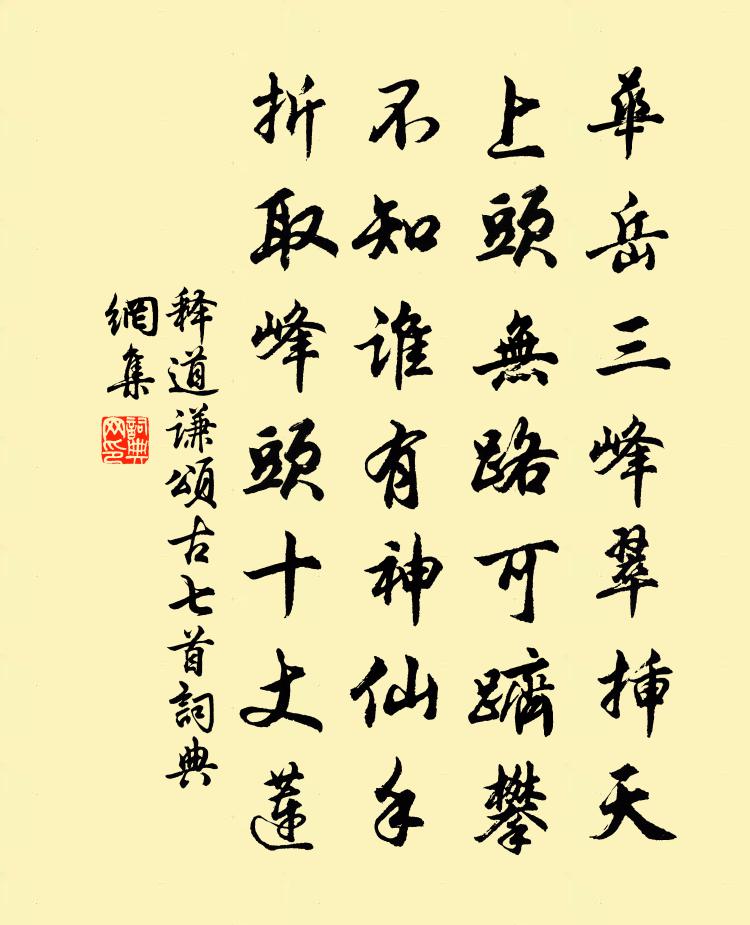 華岳三峰翠挿天
上頭無路可躋攀
不知誰有神仙手
折取峰頭十丈蓮
释道谦頌古七首詞典
網集
詞典網印